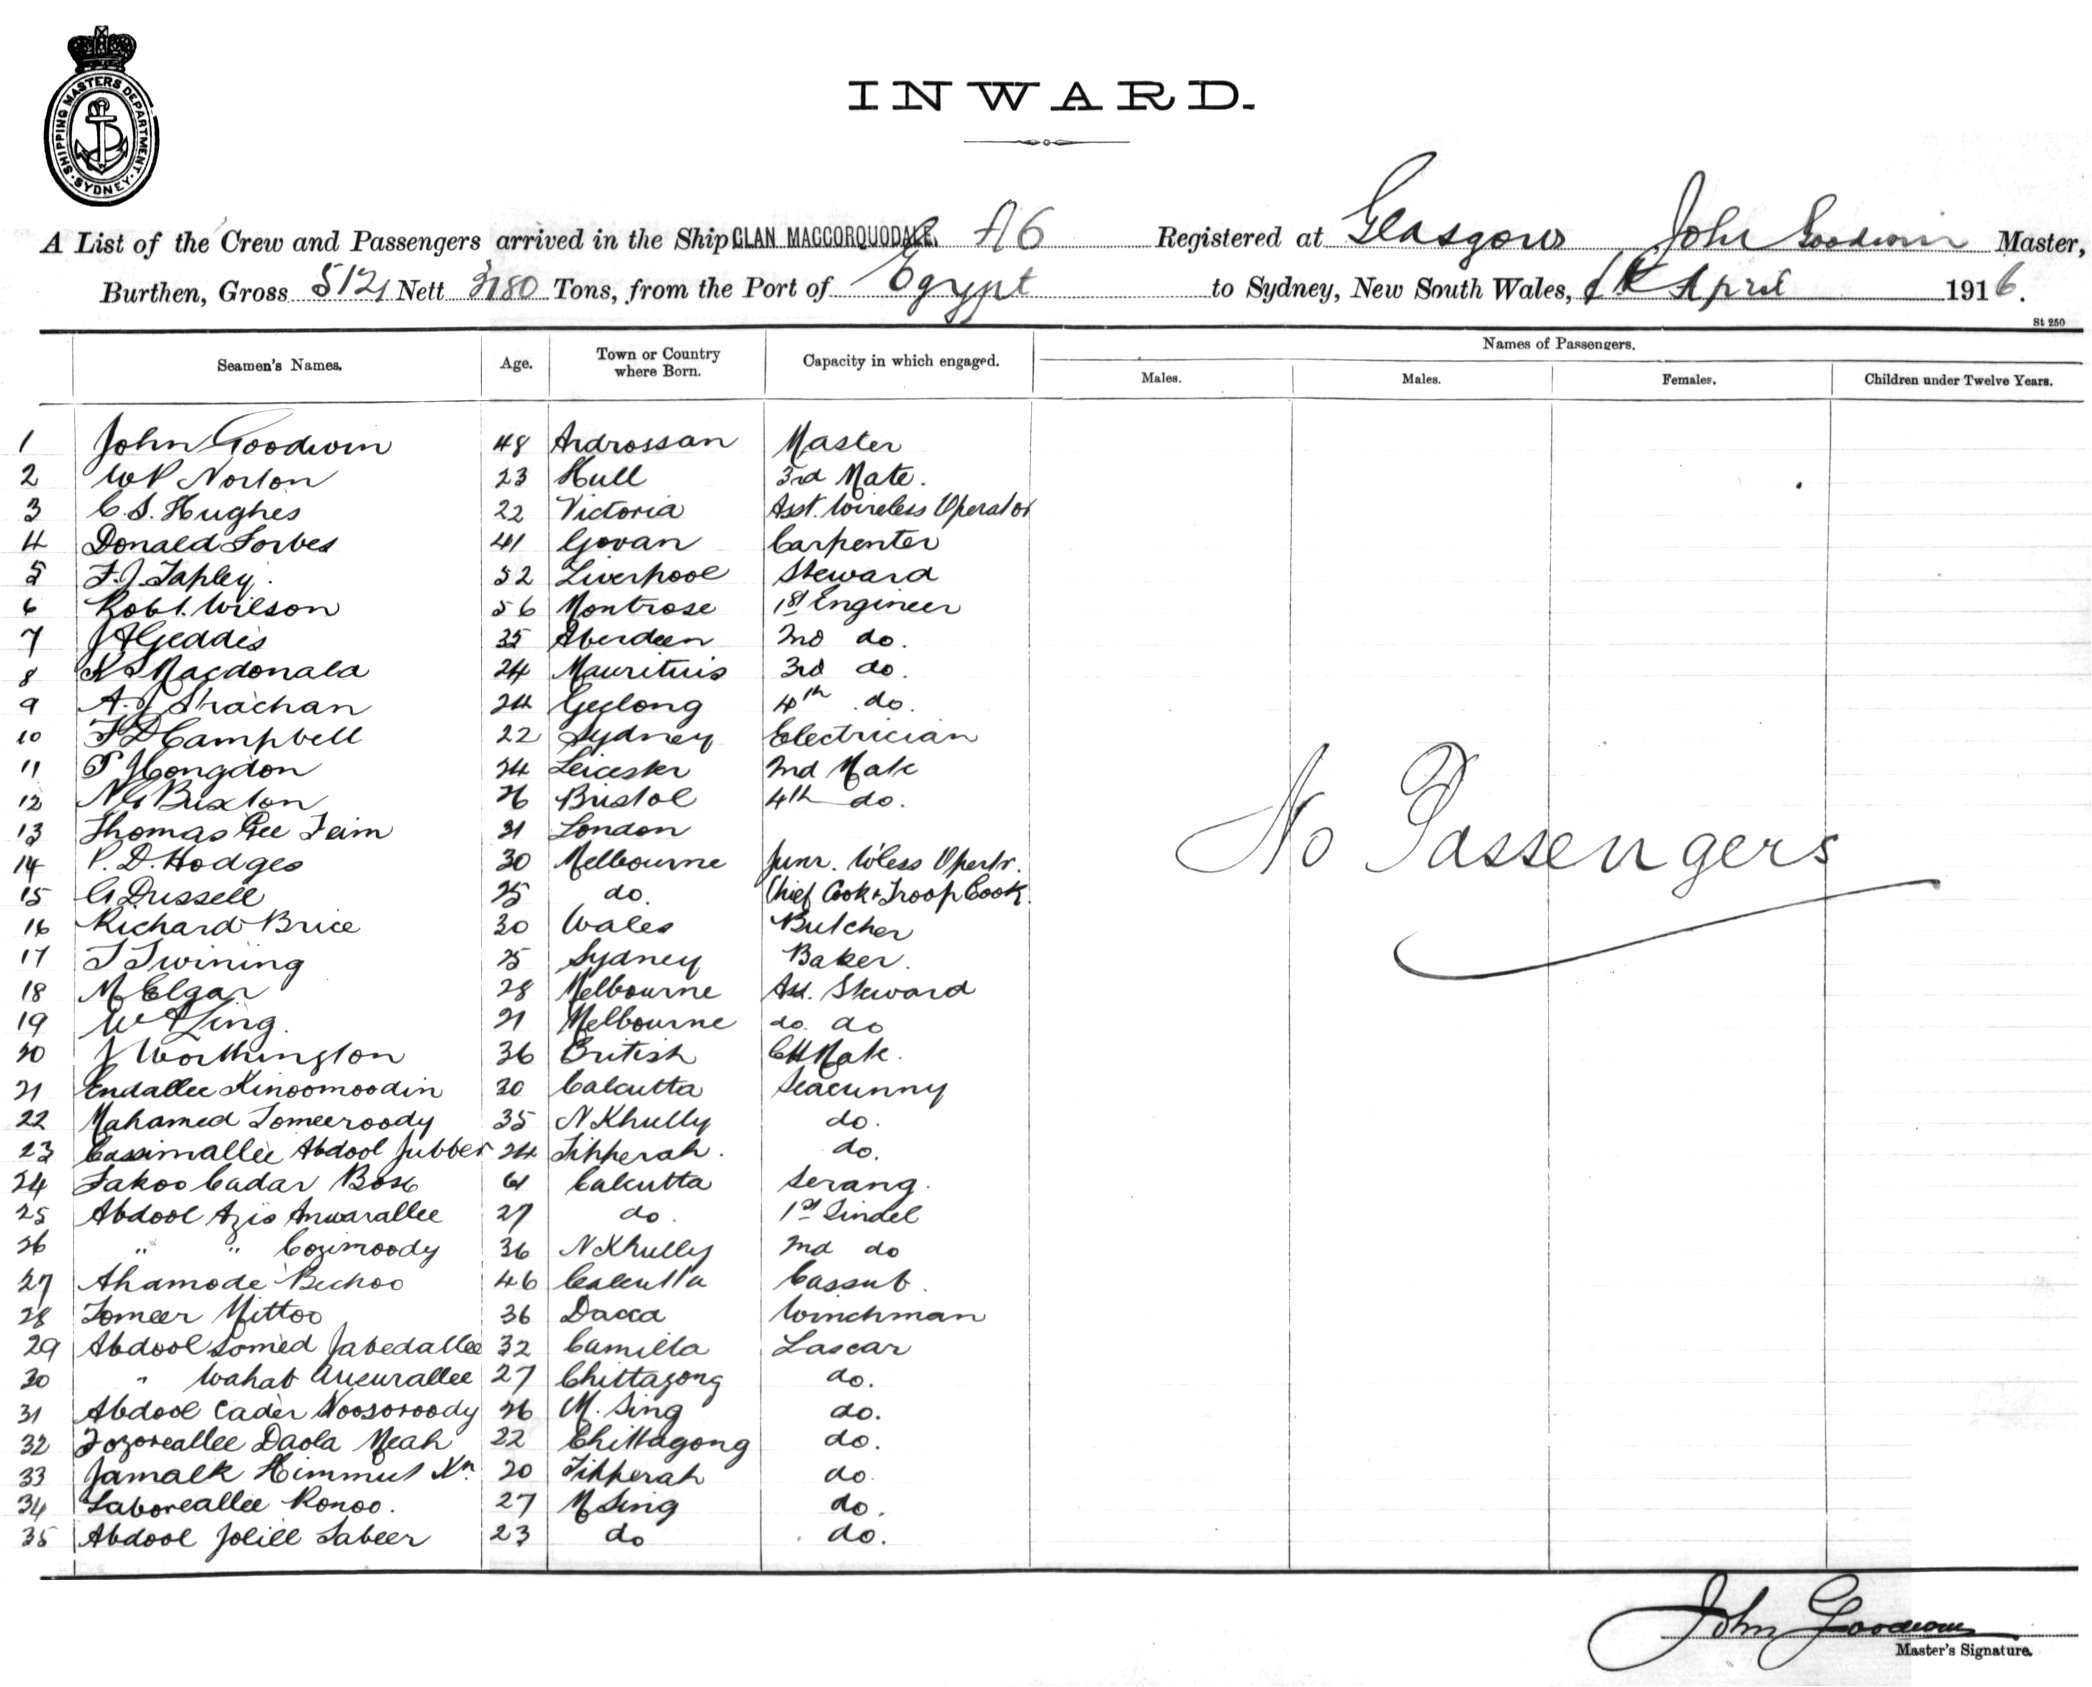 SHIPPING MASTERS DEPARTMENT. SYDNEY.
INWARD.
A List of the Crew and Passengers arrived in the Ship CLAN MACCORQUODALE. A6 Registered at Glasgow John Goodwin Master,
Burthen, Gross 5121 Nett 3180 Tons, from the Port of Egypt to Sydney, New South Wales, April 1916.
St 250
Seamen's Names. Age. Town or Country where Born. Capacity in which engaged. Names of Passengers.
Males. Males. Females. Children under Twelve Years.
1 John Goodwin 48 Ardrossan Master
2 W P Norton 23 Hull 3rd Mate.
3 C. S. Hughes 22 Victoria Asst. Wireless Operator
4 Donald Forbes 41 Govan Carpenter
5 F. J. Tapley. 52 Liverpool Steward
6 Robt. Wilson 56 Montrose 1st Engineer
7 J A Geddes 35 Aberdeen 2nd do.
8 Macdonald 24 Mauritius 3rd do.
9 A. J Strachan 24 Geelong 4th do.
10 F D Campbell 22 Sydney Electrician
11 Congdon 24 Leicester 2nd Mate
12 N G Buxton 26 Bristol 4th do.
13 Thomas Gee 21 London
14 P. D. Hodges 30 Melbourne Junr. W'less Opertr.
15 G Dussell 25 do. Chief Cook & Troop Cook.
16 Richard Brice 30 Wales Butcher
17 T Twining 25 Sydney Baker.
18 M Elgar 28 Melbourne Ass. Steward
19 W 21 Melbourne do. do
20 J Worthington 36 British Ch Mate.
21 Endallee Kinoomoodin 30 Calcutta Seacunny
22 Mahamed Tomeeroody 35 N Khully do.
23 Cassimallee Abdool Jubber 24 Tipperah. do.
24 Fakoo Cadar Box 61 Calcutta Serang.
25 Abdool Azis Anwarallee 27 do. 1st Tindel
26 " " Cozimoody 36 N Khully 2nd do
27 Ahamode Bechoo 46 Calcutta Cassub.
28 Tomeer Mittoo 36 Dacca Winchman
29 Abdool Somed Jabedallee 32 Camilla Lascar
30 " Wahab 27 Chittagong do.
31 Abdool Cader Noosoroody 26 M. Sing do.
32 Fozoreallee Daola Meah 22 Chittagong do.
33 Jamalk Himmut Kn 20 Tipperah do.
34 Saboreallee Ronoo. 27 M Sing do.
35 Abdool Jolill Sabeer 23 do do.
No Passengers
John Goodwin
Master's Signature.